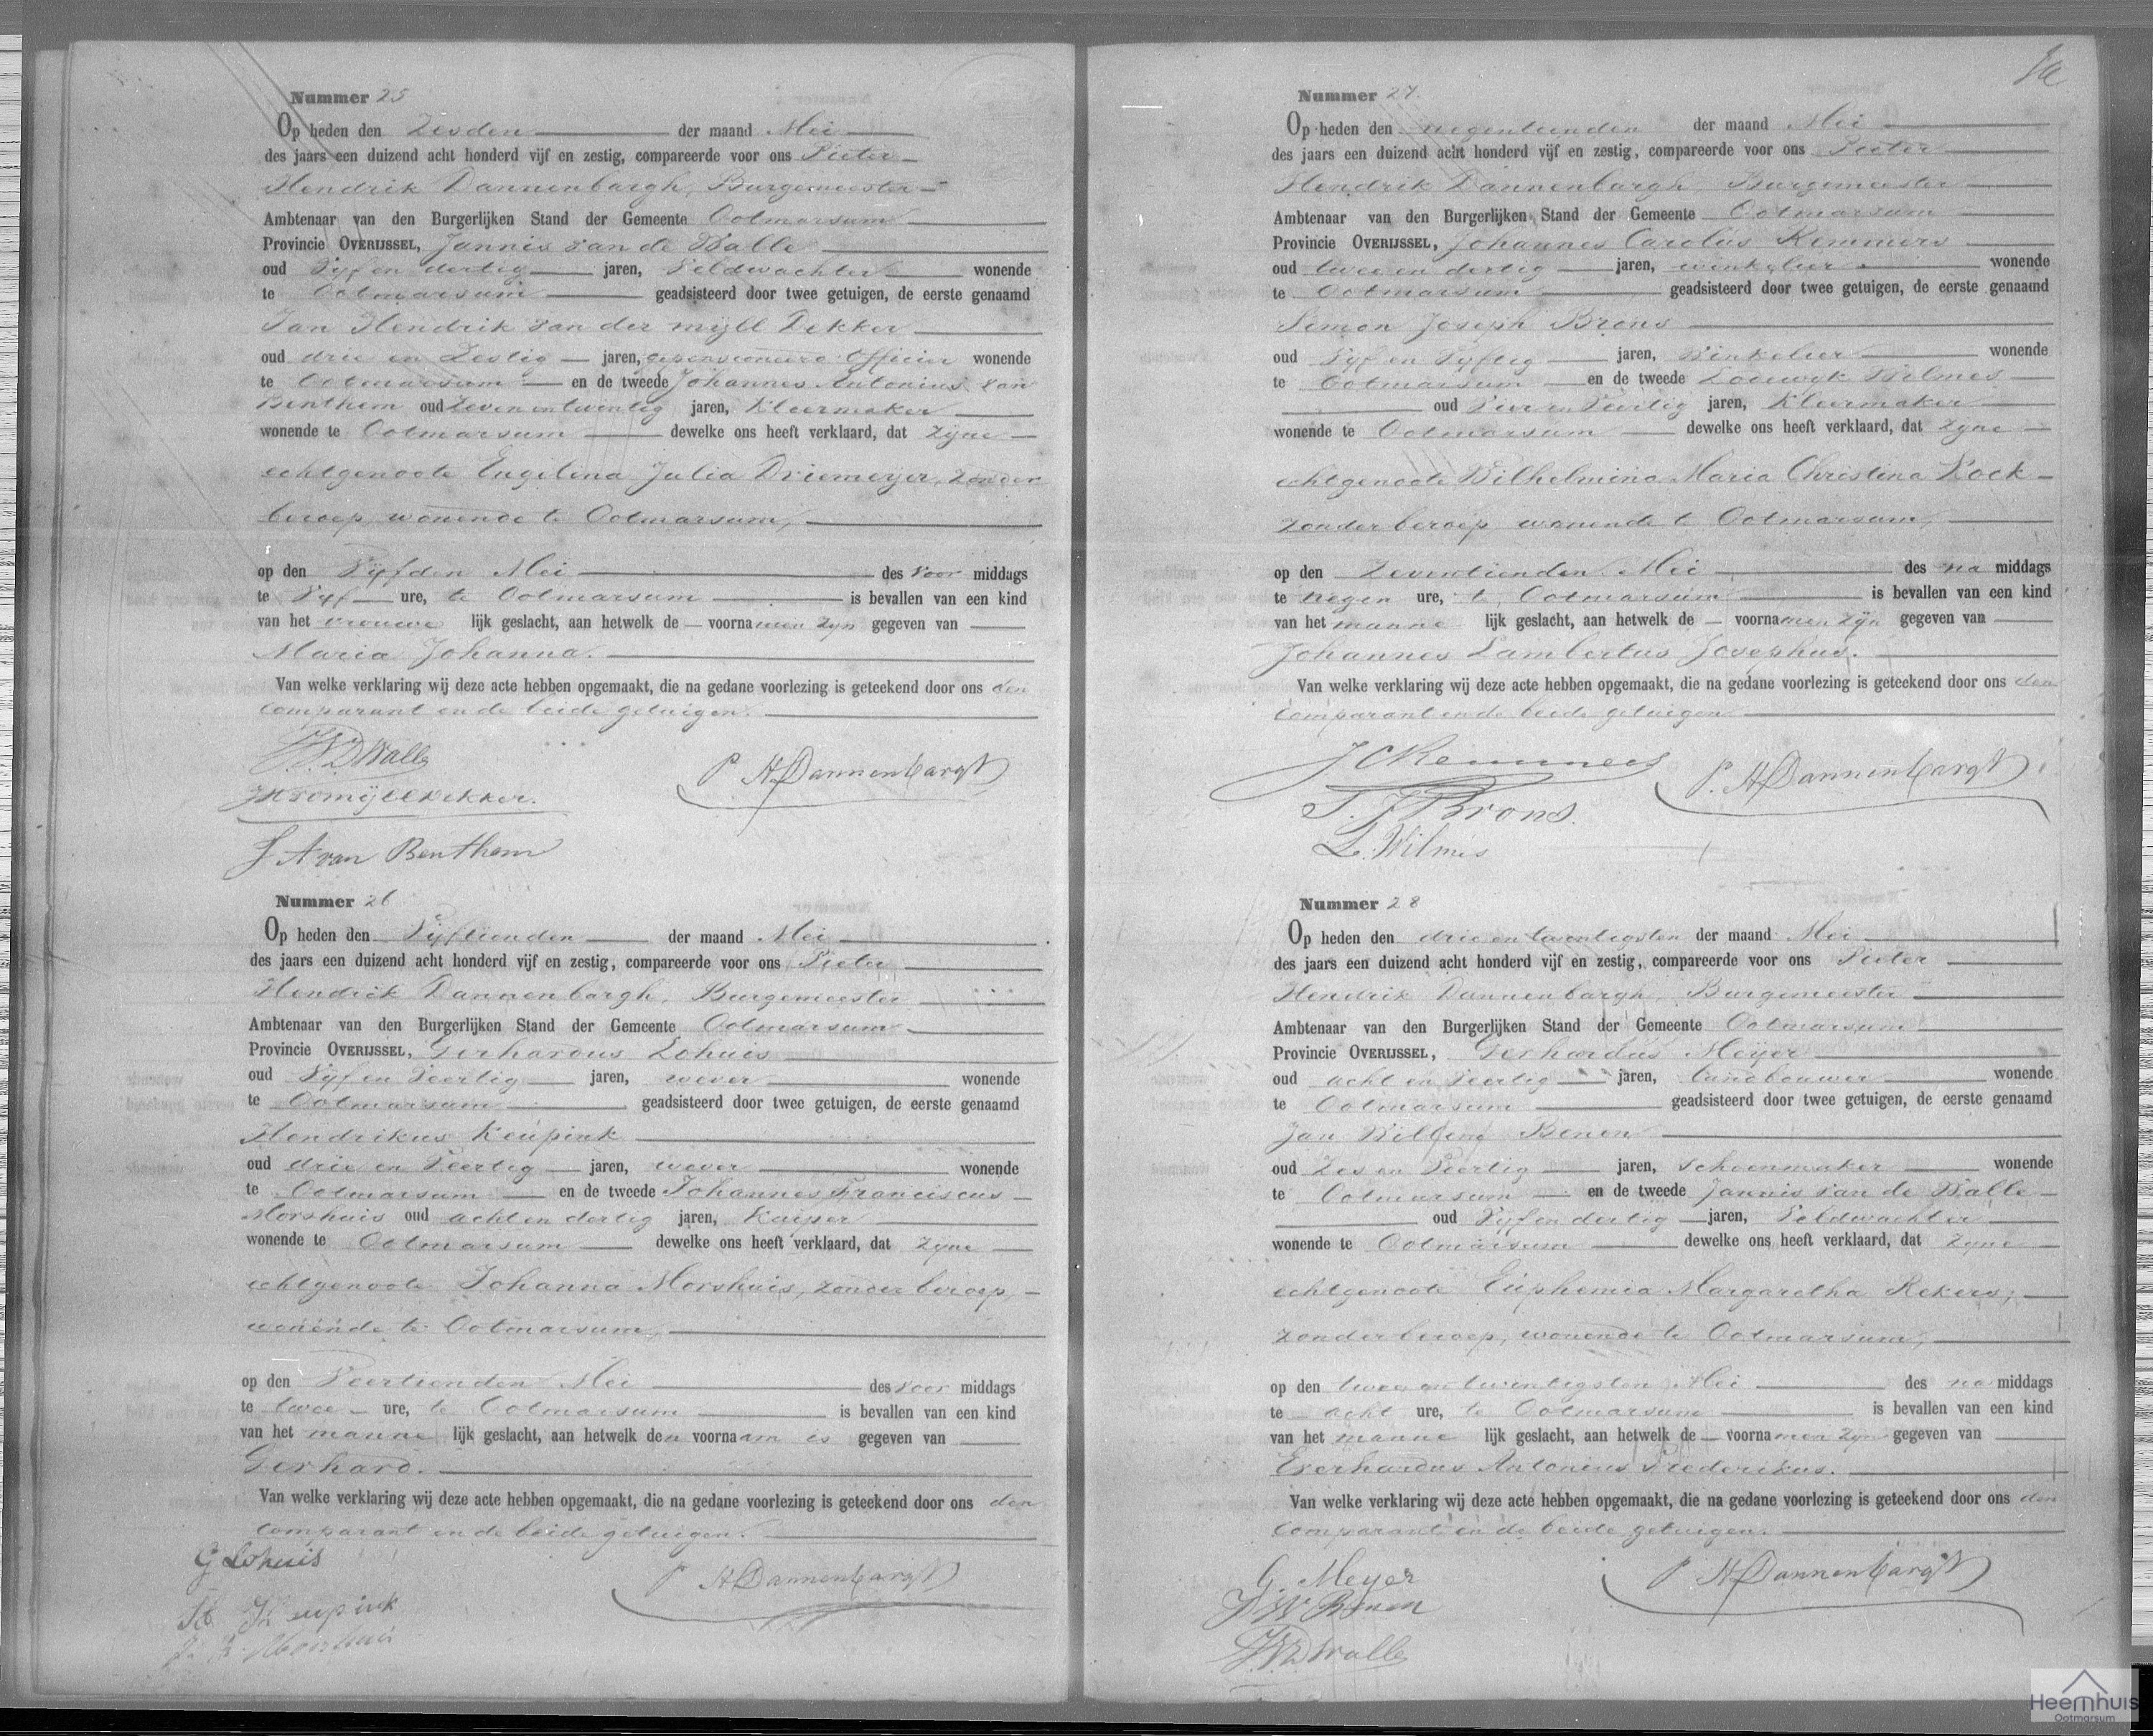 Nummer 25
Op heden den Zesden der maand Mei
des jaars een duizend acht honderd vijf en zestig, compareerde voor ons Pieter
Hendrik Dannenbargh, Burgemeester
Ambtenaar van den Burgerlijken Stand der Gemeente Ootmarsum
Provincie OVERIJSSEL, Jannis van de Walle
oud Vyf en dertig jaren, Veldwachter wonende
te Ootmarsum geadsisteerd door twee getuigen, de eerste genaamd
Jan Hendrik van der myll Dekker
oud drie en Zestig jaren, gepensioneerd Officier wonende
te Ootmarsum en de tweede Johannes Antonius van
Benthem oud Zeven en twentig jaren, Kleermaker
wonende te Ootmarsum dewelke ons heeft verklaard, dat zyne
echtgenoote Engelina Julia Driemeyer, zonder
beroep, wonende te Ootmarsum,
op den Vyfden Mei des voor middags
te Vyf ure, te Ootmarsum is bevallen van een kind
van het vrouwe lijk geslacht, aan hetwelk de voornamen zyn gegeven van
Maria Johanna.
Van welke verklaring wij deze acte hebben opgemaakt, die na gedane voorlezing is geteekend door ons den
comparant en de beide getuigen.
J.V.D Walle
P. H Dannenbargh
JHvdmyllDekker.
J A van Benthem
Nummer 26
Op heden den Vyftienden der maand Mei
des jaars een duizend acht honderd vijf en zestig, compareerde voor ons Pieter
Hendrik Dannenbargh, Burgemeester
Ambtenaar van den Burgerlijken Stand der Gemeente Ootmarsum
Provincie OVERIJSSEL, Gerhardus Lohuis
oud Vyf en Veertig jaren, wever wonende
te Ootmarsum geadsisteerd door twee getuigen, de eerste genaamd
Hendrikus Keupink
oud drie en Veertig jaren, wever wonende
te Ootmarsum en de tweede Johannes Franciscus
Morshuis oud acht en dertig jaren, Kuiper
wonende te Ootmarsum dewelke ons heeft verklaard, dat zyne
echtgenoote Johanna Morshuis, zonder beroep,
wonende te Ootmarsum,
op den Veertienden Mei des voor middags
te twee ure, te Ootmarsum is bevallen van een kind
van het manne lijk geslacht, aan hetwelk den voornaam is gegeven van
Gerhard.
Van welke verklaring wij deze acte hebben opgemaakt, die na gedane voorlezing is geteekend door ons den
comparant en de beide getuigen.
G Lohuis
P H Dannenbargh
H Keupink
J. F. Morshuis
Nummer 27.
Op heden den negentienden der maand Mei
des jaars een duizend acht honderd vijf en zestig, compareerde voor ons Pieter
Hendrik Dannenbargh, Burgemeester
Ambtenaar van den Burgerlijken Stand der Gemeente Ootmarsum
Provincie OVERIJSSEL, Johannes Carolus Remmers
oud twee en dertig jaren, winkelier wonende
te Ootmarsum geadsisteerd door twee getuigen, de eerste genaamd
Simon Joseph Brons
oud Vyf en Vyftig jaren, Winkelier wonende
te Ootmarsum en de tweede Lodewyk Wilmes
oud Vier en Veertig jaren, Kleermaker
wonende te Ootmarsum dewelke ons heeft verklaard, dat zyne
echtgenoote Wilhelmina Maria Christina Kock
zonder beroep wonende te Ootmarsum,
op den Zeventienden Mei des na middags
te negen ure, te Ootmarsum is bevallen van een kind
van het manne lijk geslacht, aan hetwelk de voornamen zyn gegeven van
Johannes Lambertus Josephus.
Van welke verklaring wij deze acte hebben opgemaakt, die na gedane voorlezing is geteekend door ons den
comparant en de beide getuigen
J C Remmers
P. H Dannenbargh
S. J Brons.
L. Wilmes
Nummer 28
Op heden den drie en twentigsten der maand Mei
des jaars een duizend acht honderd vijf en zestig, compareerde voor ons Pieter
Hendrik Dannenbargh, Burgemeester
Ambtenaar van den Burgerlijken Stand der Gemeente Ootmarsum
Provincie OVERIJSSEL, Gerhardus Meyer
oud acht en Veertig jaren, landbouwer wonende
te Ootmarsum geadsisteerd door twee getuigen, de eerste genaamd
Jan Willem Benen
oud Zes en Veertig jaren, Schoenmaker wonende
te Ootmarsum en de tweede Jannis van de Walle
oud Vyf en dertig jaren, Veldwachter
wonende te Ootmarsum dewelke ons heeft verklaard, dat zyne
echtgenoote Euphemia Margaretha Rekers,
zonder beroep, wonende te Ootmarsum,
op den twee en twintigsten Mei des na middags
te acht ure, te Ootmarsum is bevallen van een kind
van het manne lijk geslacht, aan hetwelk de voornamen zyn gegeven van
Everhardus Antonius Frederikus.
Van welke verklaring wij deze acte hebben opgemaakt, die na gedane voorlezing is geteekend door ons den
comparant en de beide getuigen.
G. Meyer
P H Dannenbargh
J W Benen
J.V.D Walle
Heemhuis
Ootmarsum